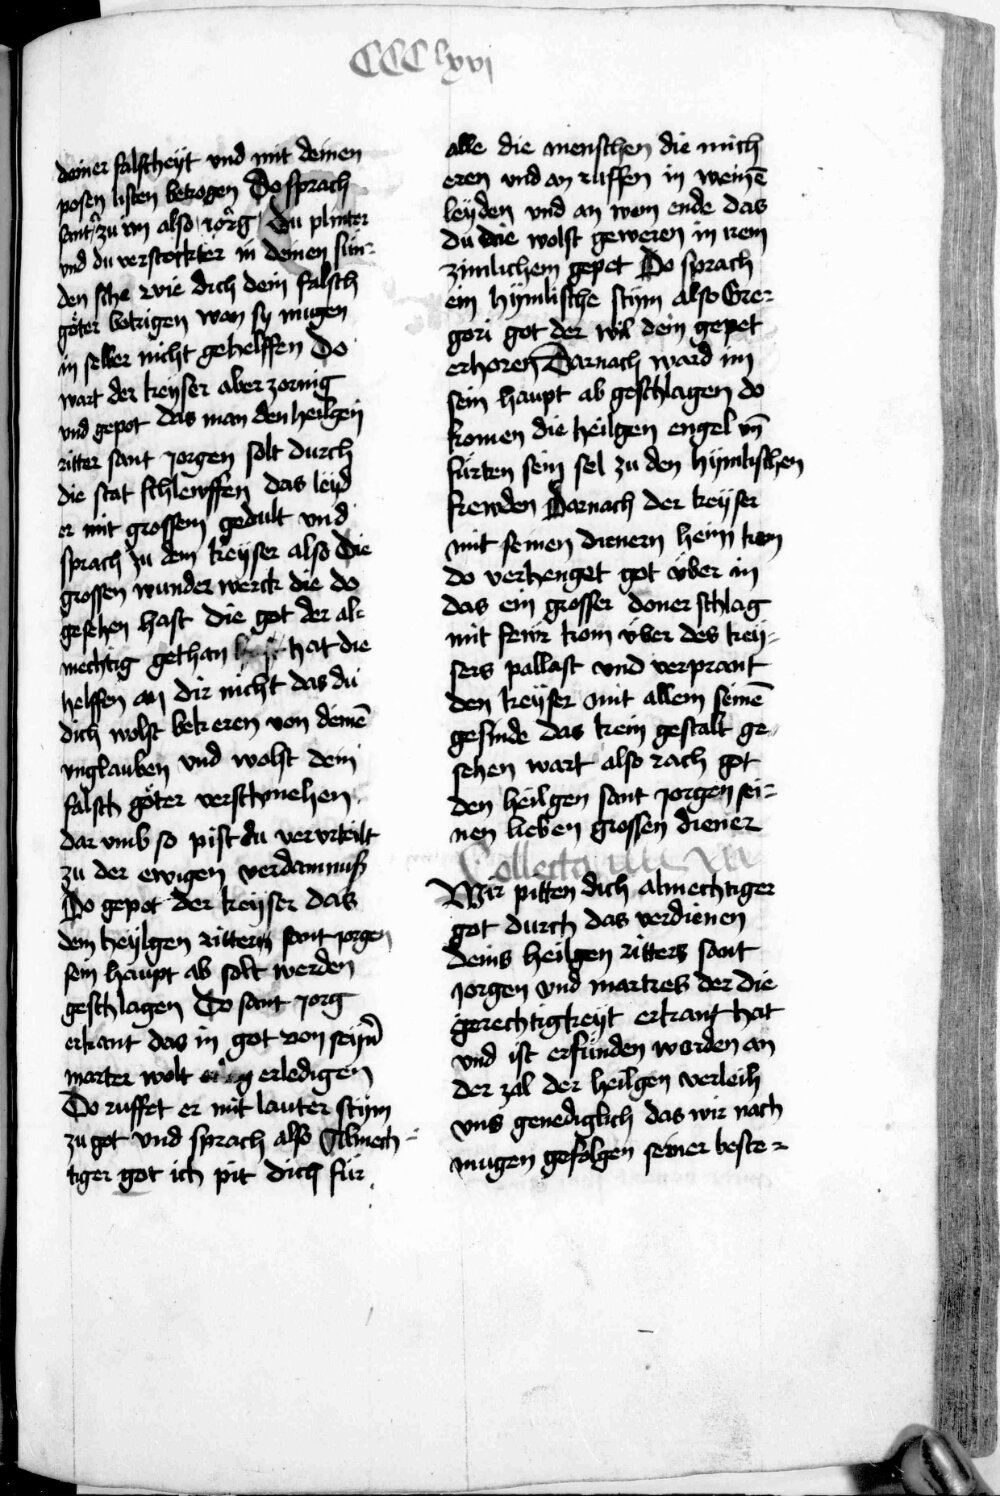 CCClxvj
deiner falscheyt vnd mit deinen
posen listen betrogen Do sprach
sant zu im also jörg Du plinter
vnd du verstockter in deinen sün-
den sihe wie dich dein falsch
göter betrigen wan sy mugen
in selber nicht gehelffen Do
wart der keyser aber zornig
vnd gepot das man den heilgen
ritter sant jorgen solt durch
die stat schleyffen das leyd
er mit grossem gedult vnd
sprach zu dem keyser also Die
grossen wunder werck die do
gesehen hast die got der al-
mechtig gethan hat die
helffen an dir nicht das du
dich wolst bekeren von deinē
vnglauben vnd wolst dein
falsch göter verschmehen
dar vmb so pist du vervrteilt
zu der ewigen verdamnuß
Do gepot der keyser das
dem heylgen rittern sant jorgen
sein haupt ab solt werden
geschlagen Do sant jorg
erkant das in got von seyn̄
marter wolt erledigen
Do ruffet er mit lauter stym
zu got vnd sprach also Almech-
tiger got ich pit dich für
alle die menschen die mich
eren vnd an ruffen in weinē
leyden vnd an wem ende das
du die wolst geweren in irem
zimlichem gepet Do sprach
ein hymlische stym also Gre-
gori got der wil dein gepet
erhoren Darnach ward im
sein haupt ab geschlagen do
komen die heilgen engel vn̄
fürten sein sel zu den hymlischen
frewden Darnach der keyser
mit seinen dienern heim kom
do verhenget got über in
das ein grosser doner schlag
mit fewr kom über des key-
sers pallast vnd verprant
den keyser mit allem seinē
gesinde das kein gestalt ge-
sehen wart also rach got
den heilgen sant jorgen sei-
nen lieben grossen diener
Collecta
Wir pitten dich almechtiger
got durch das verdienen
deins heilgen ritters sant
jorgen vnd martres der die
gerechtigkeyt erkant hat
vnd ist erfunden worden an
der zal der heilgen verleih
vns genediglich das wir nach
mugen gefolgen seiner beste-